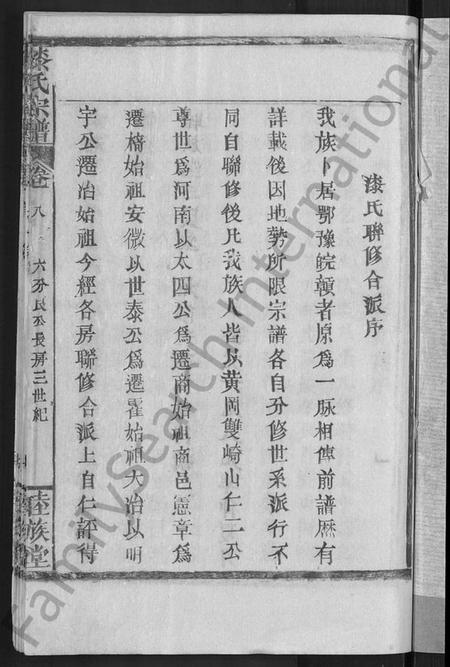 漆氏聯修合派序
我族卜居鄂豫皖贛者原爲一脉相傳前譜歷有
詳載後因地勢所限宗譜各自分修世系派行不
同自聯修後凡我族人皆以黄岡雙崎山仁二公
尊世爲河南以太四公爲遷商始祖商邑憲章爲
遷檜始祖安微以世泰公爲遷霍始祖大冶以明
宇公遷冶始祖今經各房聯修合派上自仁評得
漆氏宗譜
卷八
六分良公長房三世紀
睦族堂
FamilySearch International